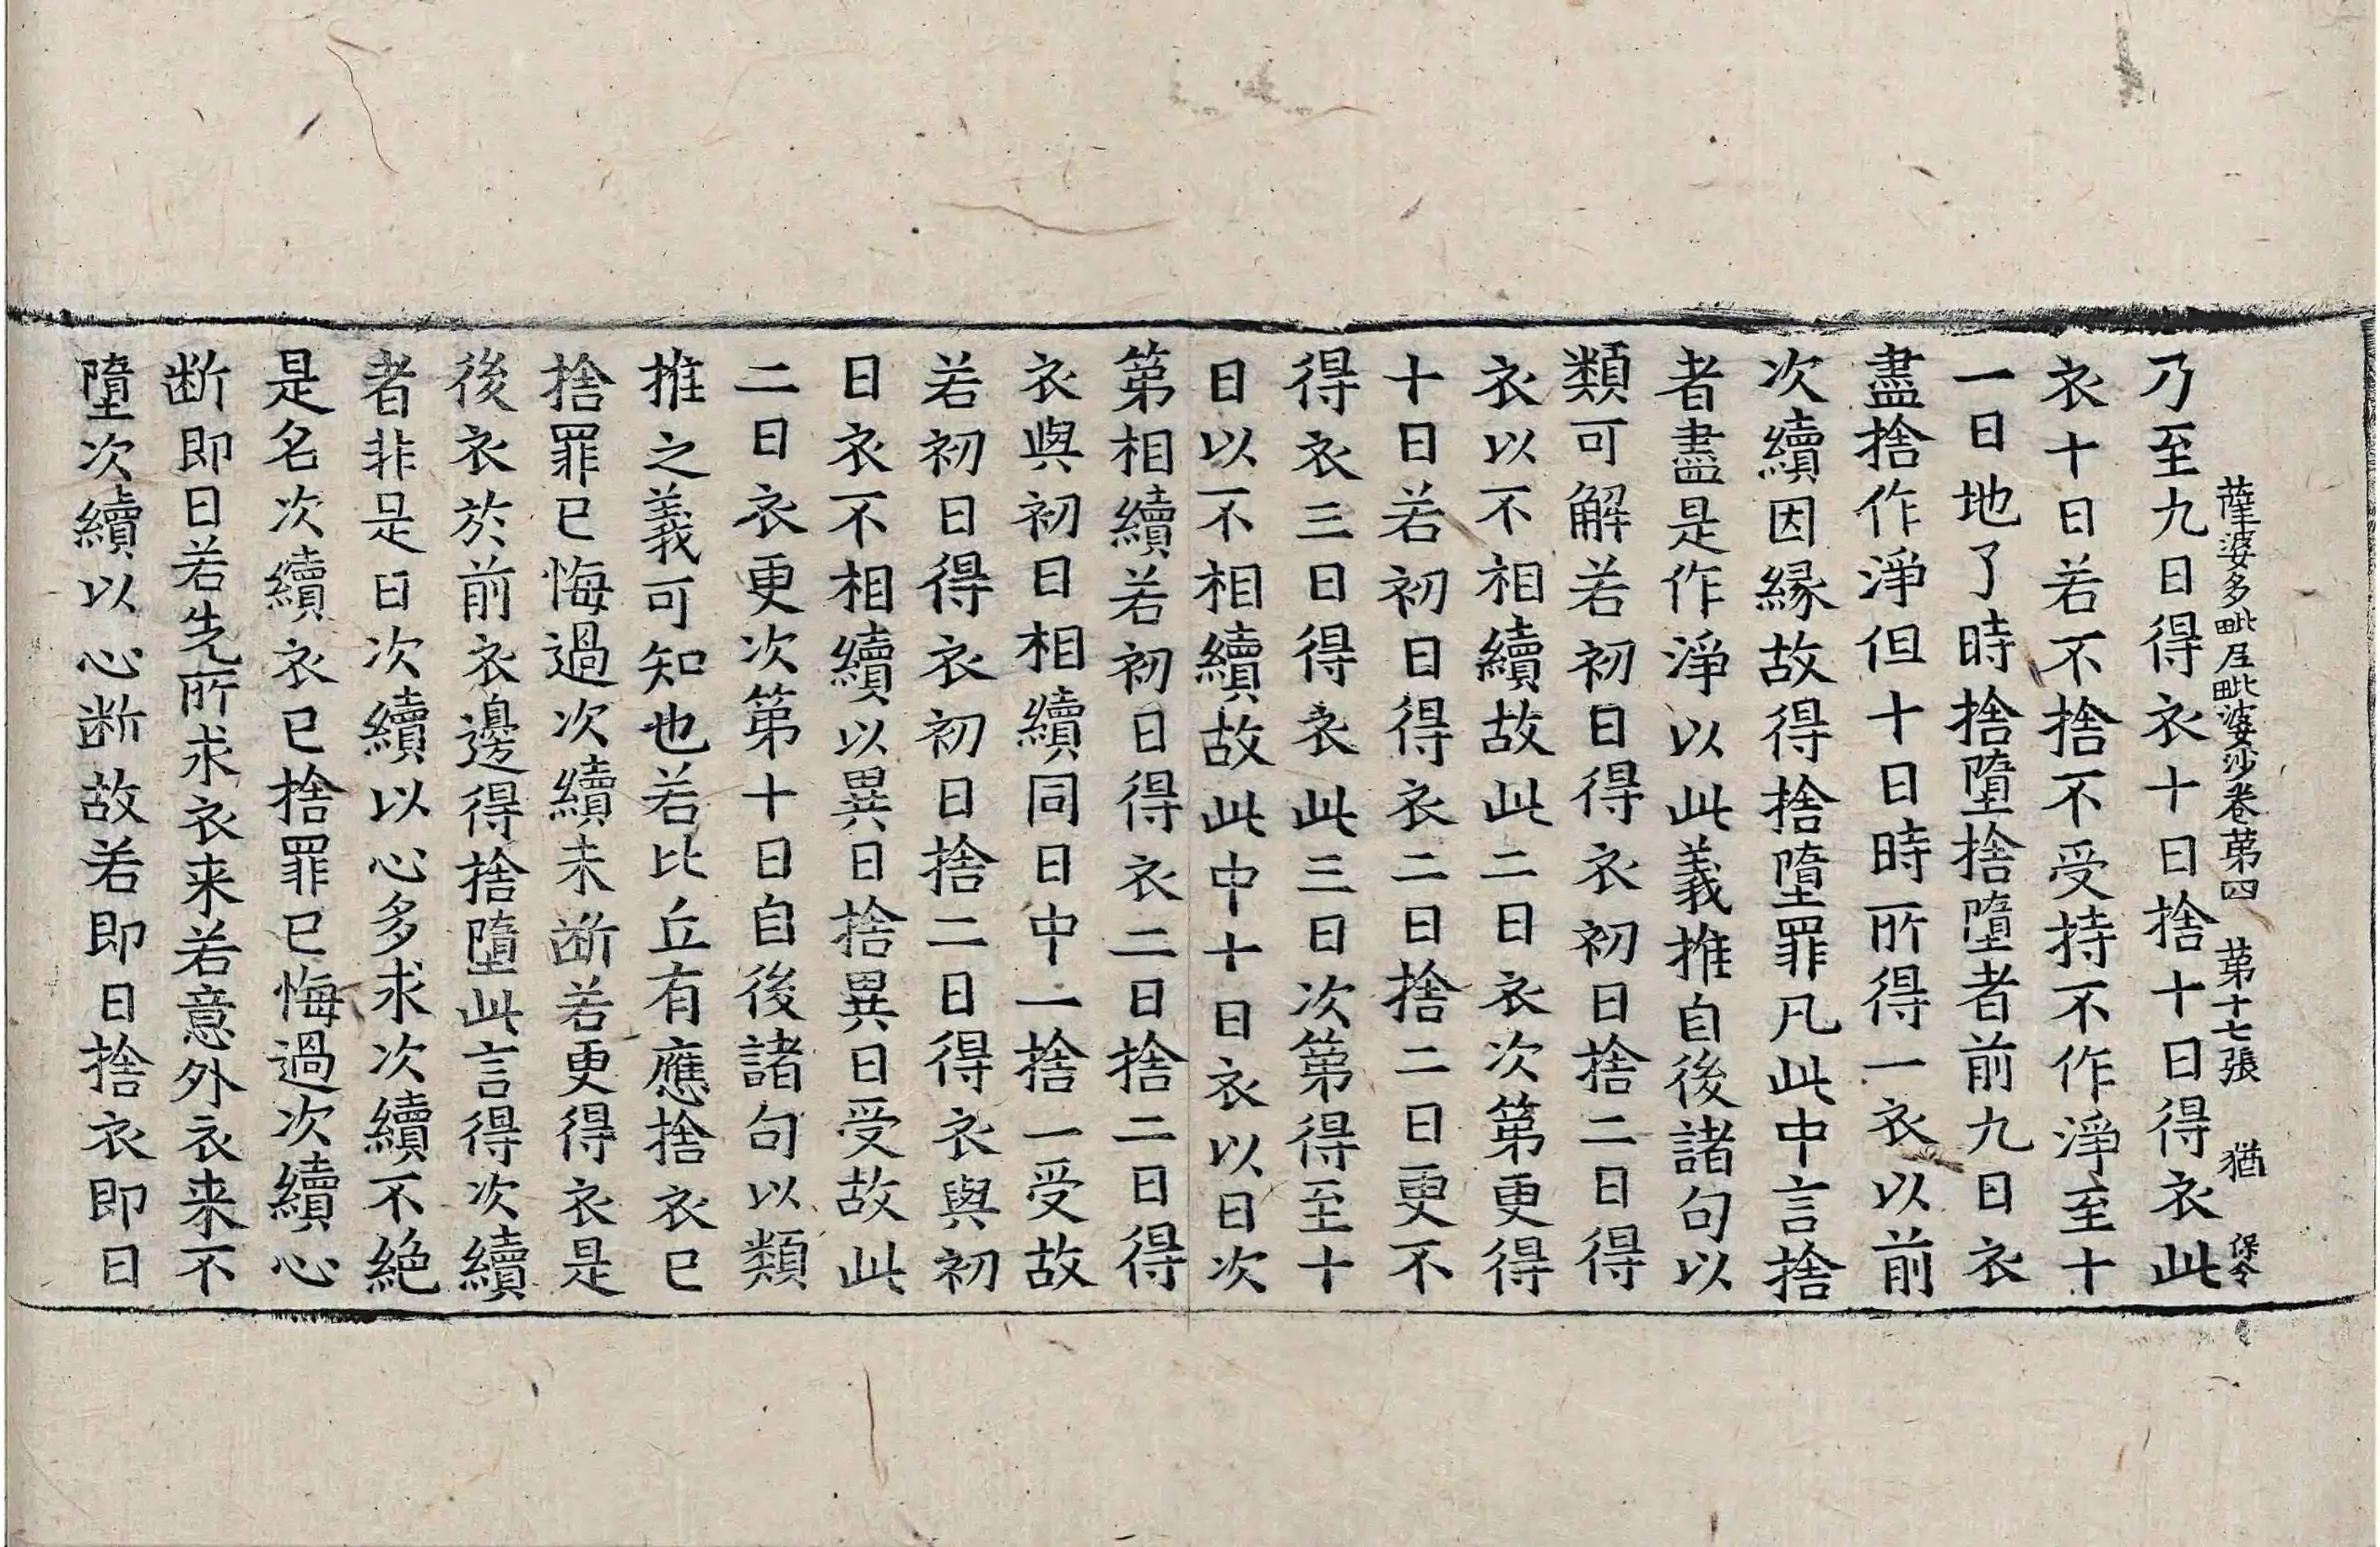 薩婆多毗尼毗婆沙卷苐四 苐十七張 猶
乃至九日得衣十日捨十日得衣此
衣十日若不捨不受持不作淨至十
一日地了時捨墮捨墮者前九日衣
盡捨作淨但十日時所得一衣以前
次續因緣故得捨墮罪凡此中言捨
者盡是作淨以此義推自後諸句以
類可解若初日得衣初日捨二日得
衣以不相續故此二日衣次第更得
十日若初日得衣二日捨二日更不
得衣三日得衣此三日次第得至十
日以不相續故此中十日衣以日次
第相續若初日得衣二日捨二日得
衣與初日相續同日中一捨一受故
若初日得衣初日捨二日得衣與初
日衣不相續以異日捨異日受故此
二日衣更次第十日自後諸句以類
推之義可知也若比丘有應捨衣已
捨罪已悔過次續未断若更得衣是
後衣於前衣邊得捨墮此言得次續
者非是日次續以心多求次續不絕
是名次續衣已捨罪已悔過次續心
断即日若先所求衣来若意外衣来不
墮次續以心断故若即日捨衣即日